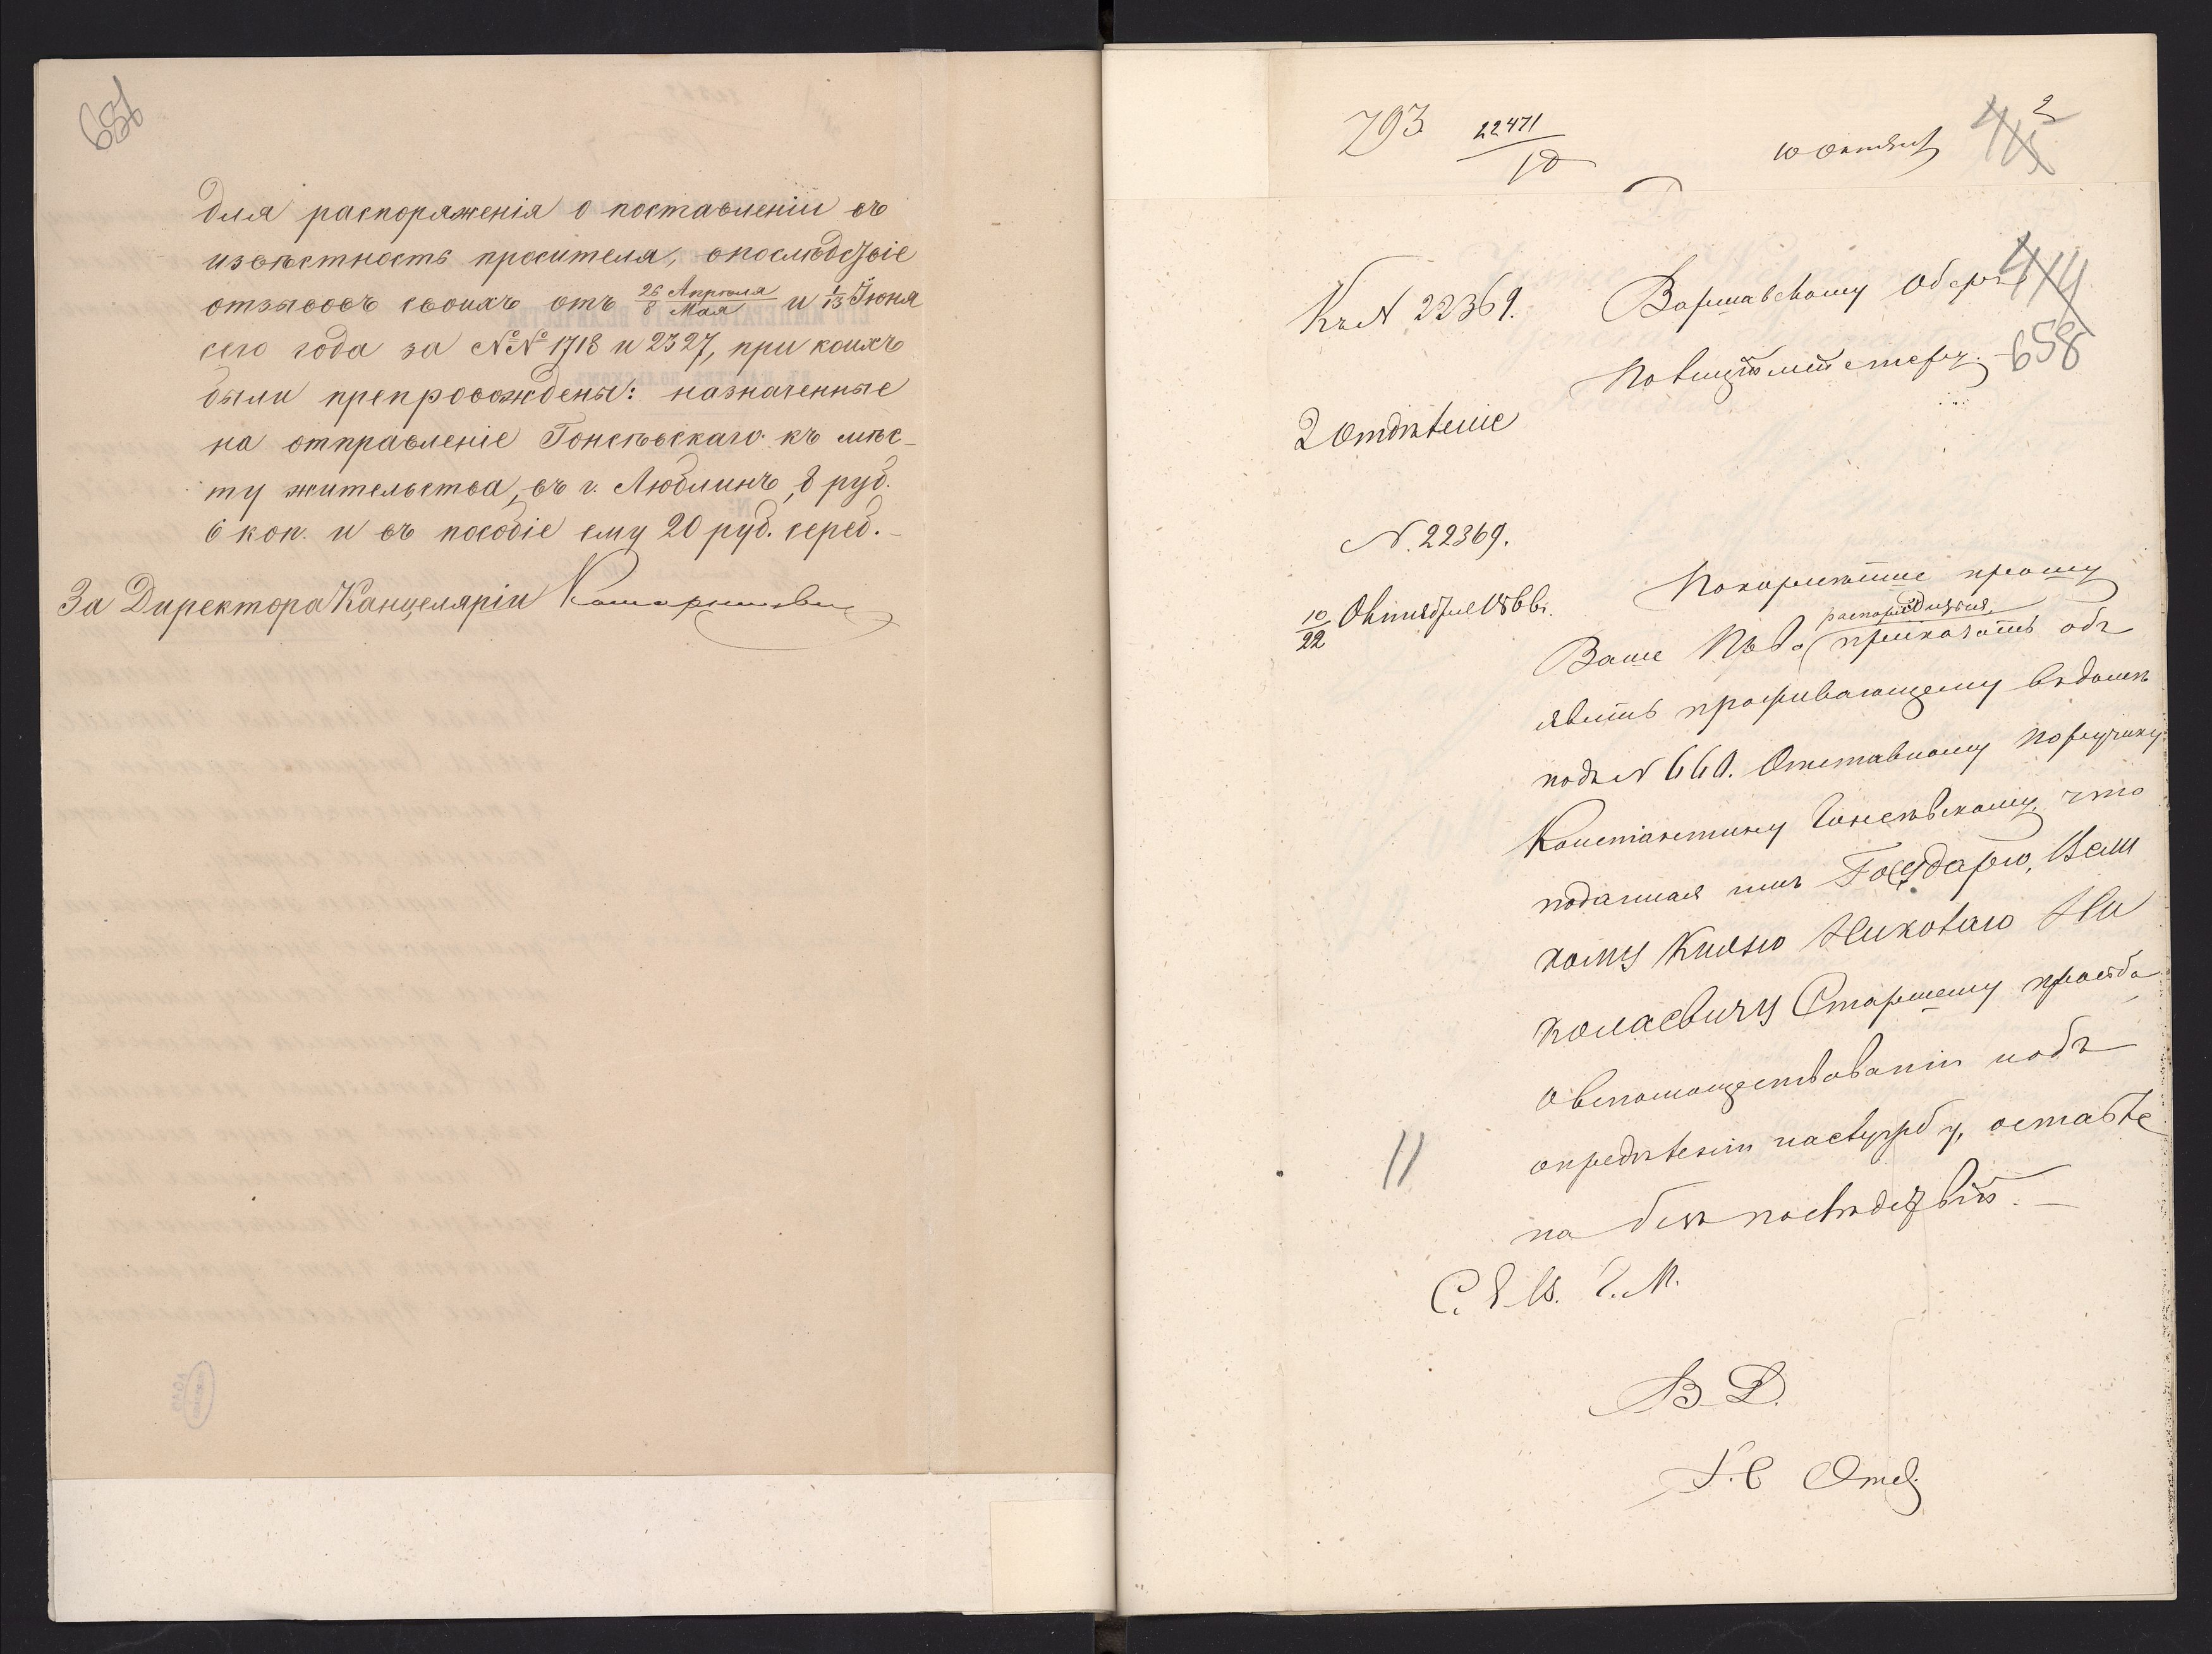 для распоряженія о поставленіи въ
извѣстность просителя, впослѣдствіе
отзывовъ своихъ отъ 26 Апрѣля / 8 Мая и 1/13 Іюня
сего года за №№ 1718 и 2327, при коихъ
были препровождены: назначенные
на отправленіе Гонсѣвскаго къ мѣс-
ту жительства, въ г. Люблинъ, 8 руб.
6 коп. и въ пособіе ему 20 руб. сереб.-
За Директора Канцеляріи
793 22471/10 10 Октября
2
414
658
Къ № 22369. Варшавскому Оберъ
Полицiймейстеру.
2 Отдѣленіе
№. 22369.
10/22 Октября 1866г.
Покорнѣйше прошу
распоряженія
Ваше Пв-во приказать объ
явить проживающему въ домѣ
подъ № 660. Отставному Поручику
Константину Гонсѣвскому, что
поданная имъ Государю, Вели
кому Князю Николаю Ни
колаевичу Старшему просьба
о вспомоществованіи и объ
опредѣленіи на службу, оставле
на безъ послѣдствій. —
С. Е. В. Г. М.
В Д.
Н. С Отд.